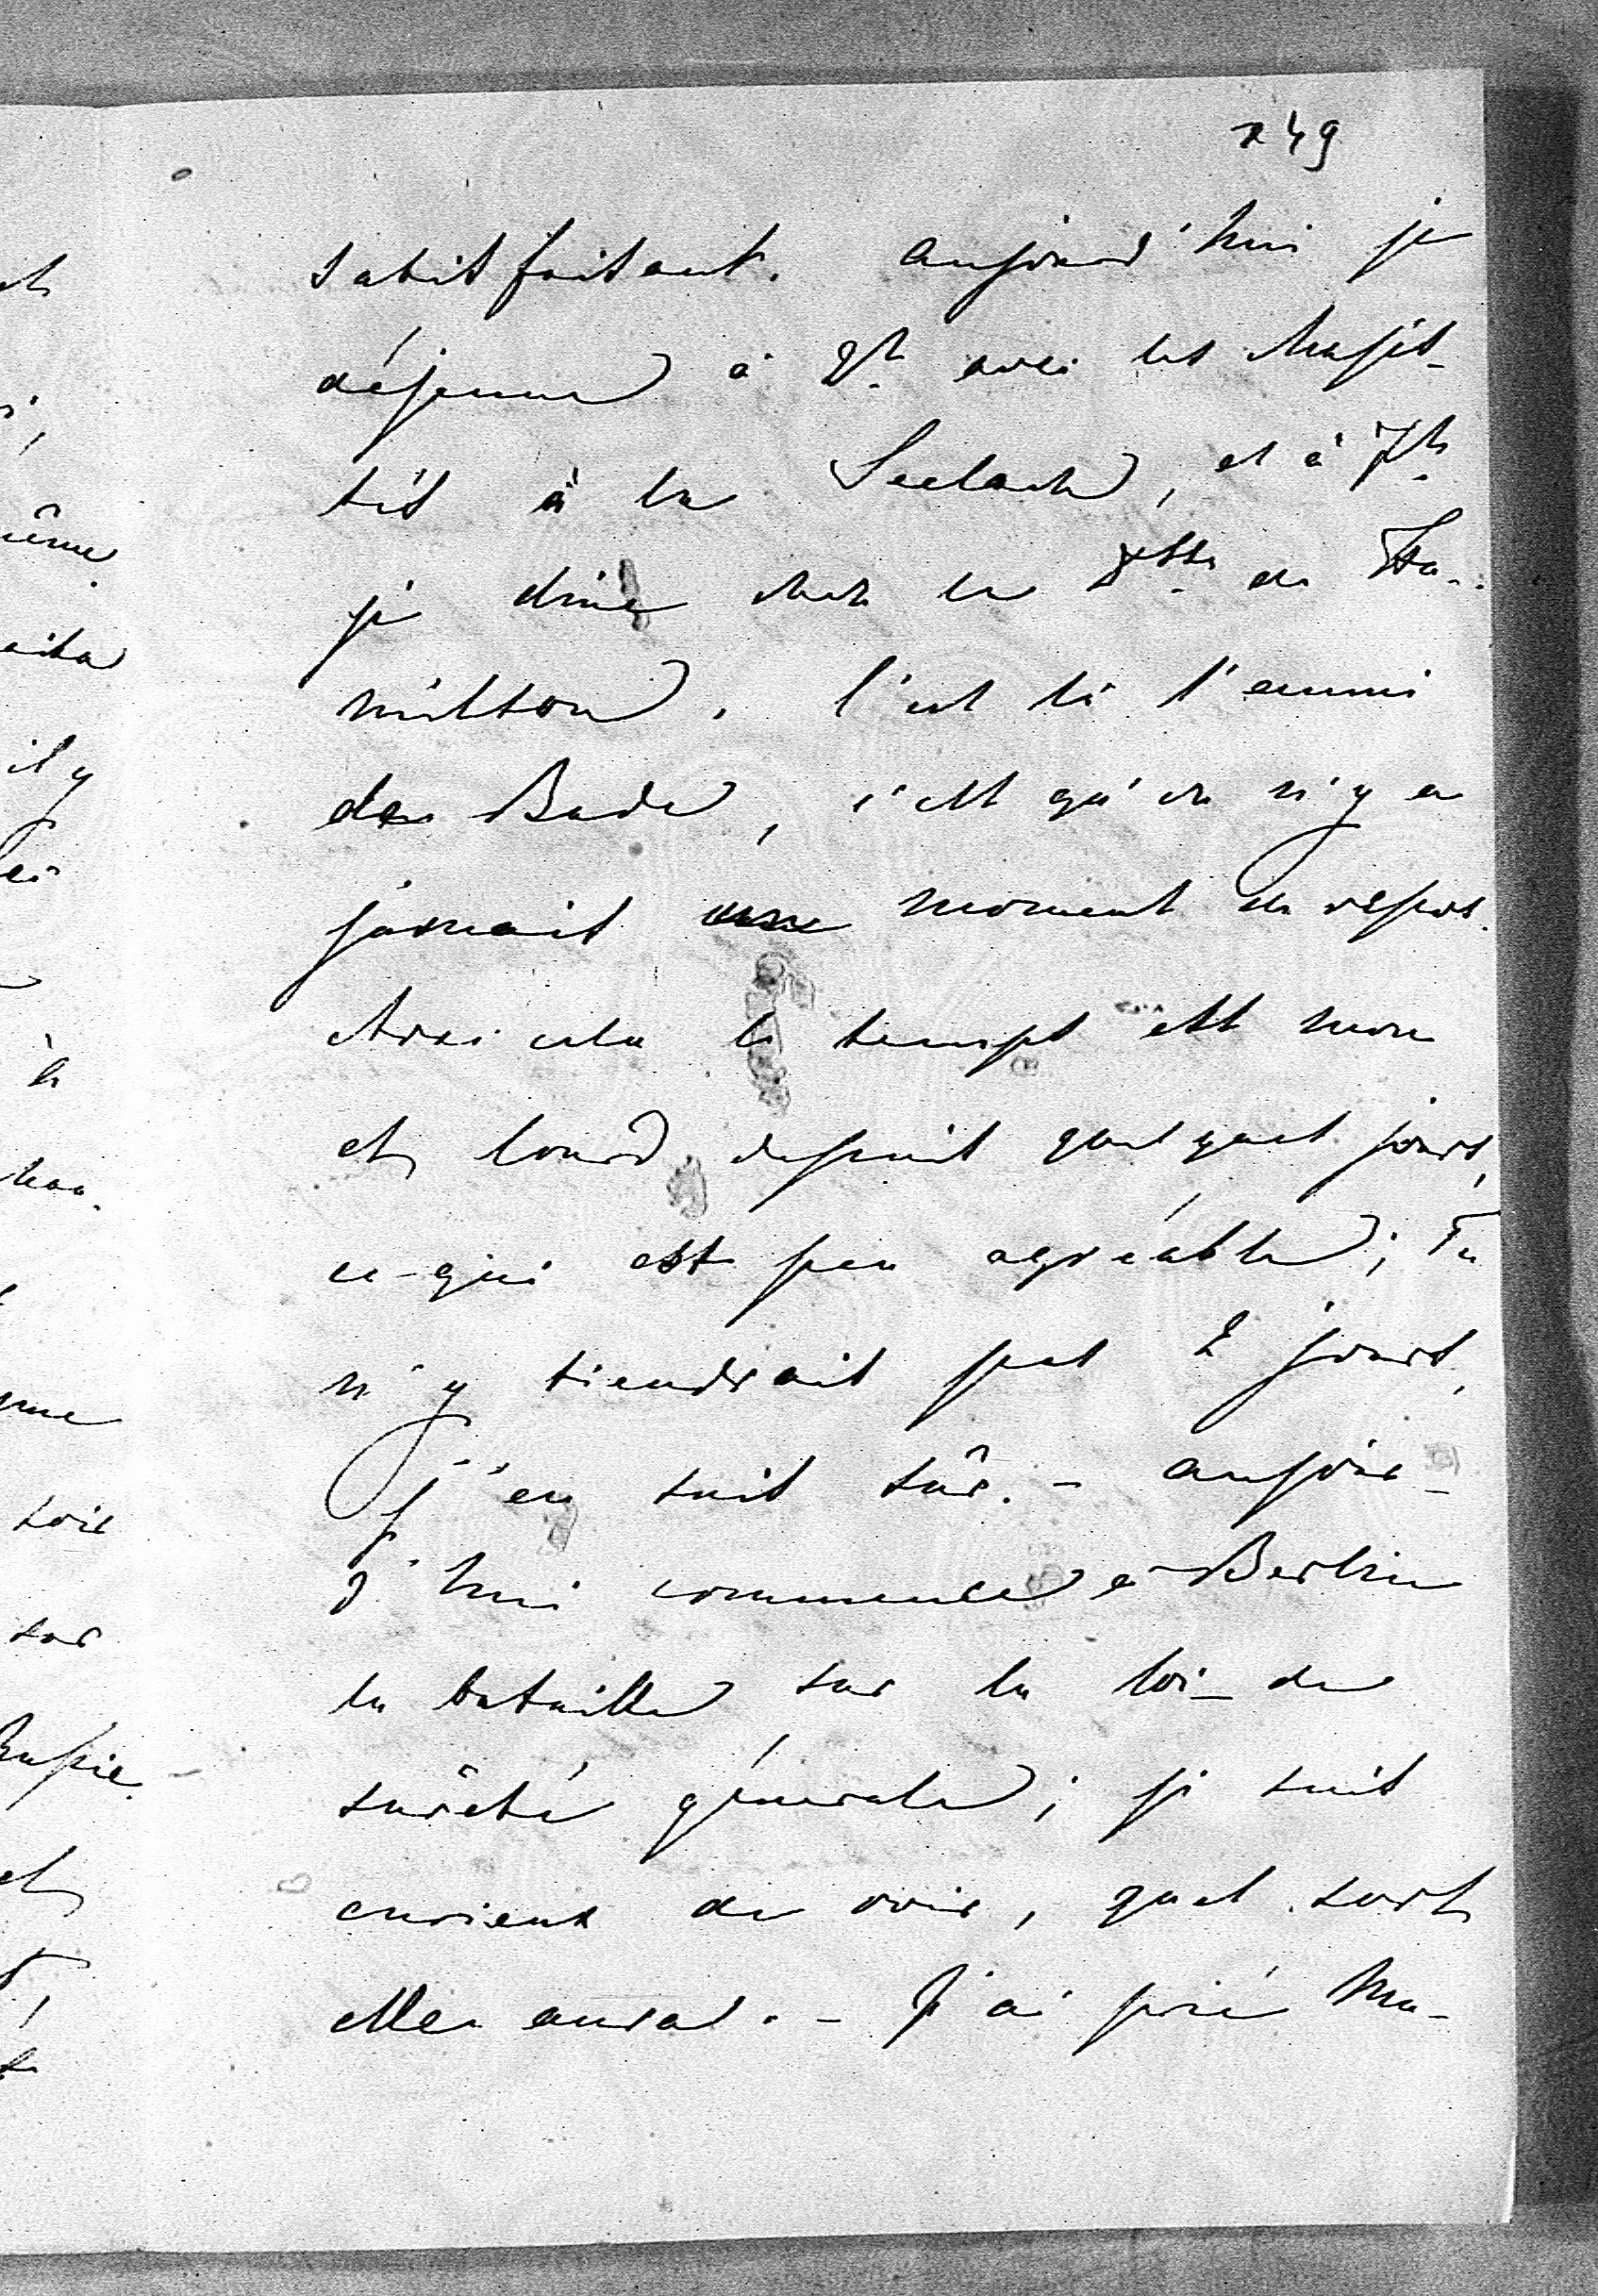 249
satisfaisant. Aujourd'hui je
déjeune à 2h. avec les Majes-
tés à la Seelach, et à 7h.
je dine chez la Dsse. de Ha-
milton. C'est là l'ennui
de Bade, c'est qu'on n'y a
jamais un moment de repos.
Avec cela le temps est mou
et lourd depuis quelques jours,
ce-qui est peu agréable; Tu
n'y tiendrais pas 2 jours,
j'en suis sûr. - Aujour-
d'hui commence à Berlin
la bataille sur la loi de
sûreté générale; je suis
curieux de voir, quel sort
elle aura. - J'ai prié Ma-